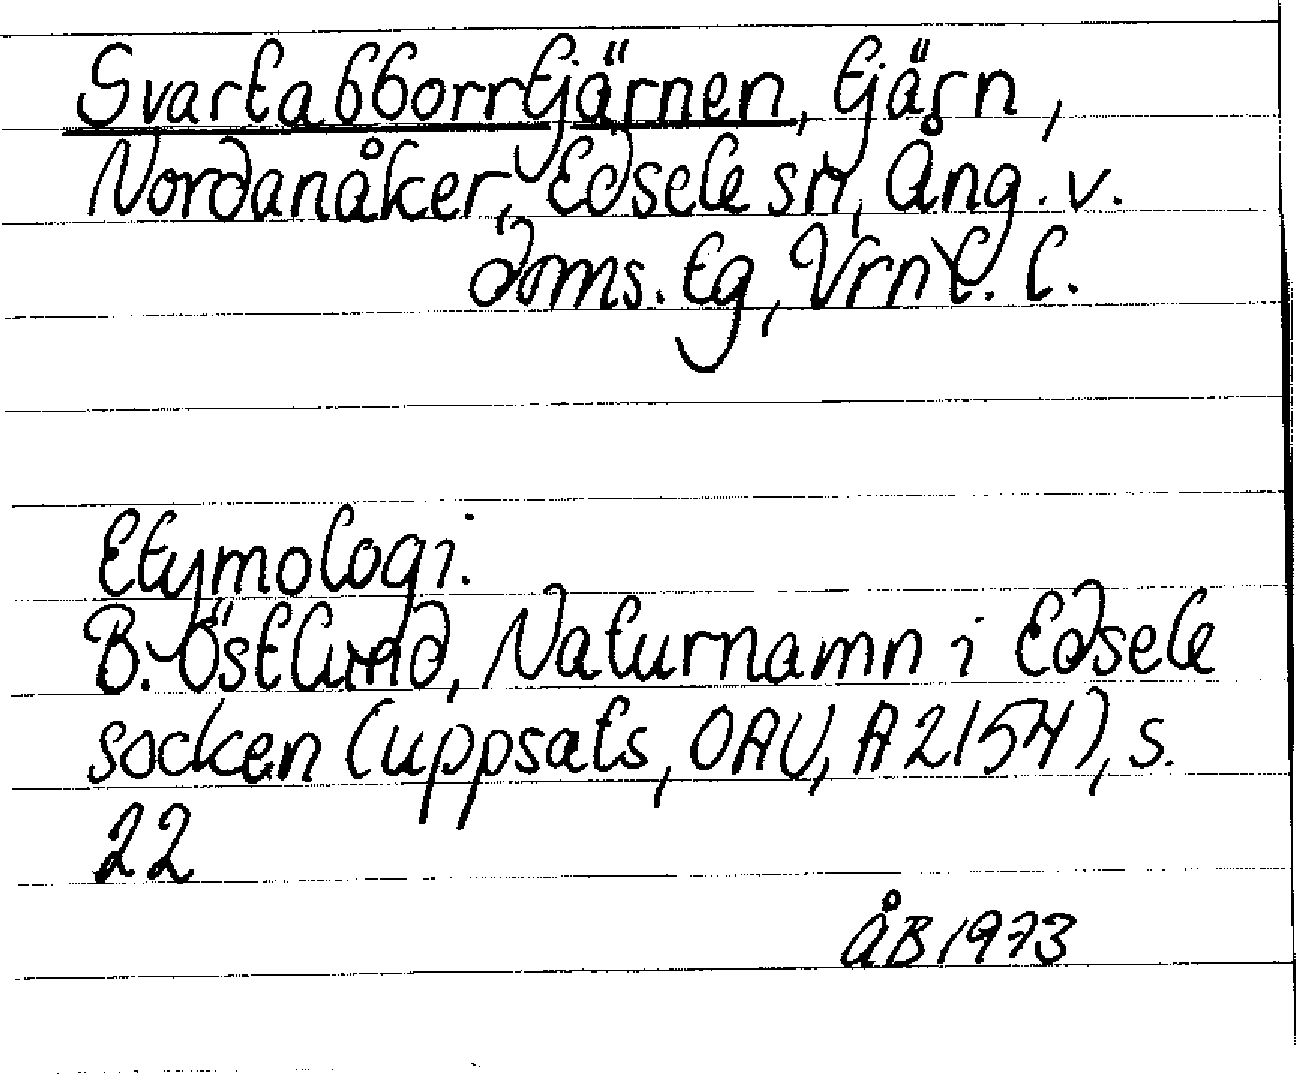 Svartabborrtjärnen, tjärn,
Nordanåker, Edsele sn, Ång. v.
doms. tg, Vrnl. l.
Etymologi.
B. Östlund, Naturnamn i Edsele
socken (uppsats, OAU, A 2154), s.
22
ÅB 1973